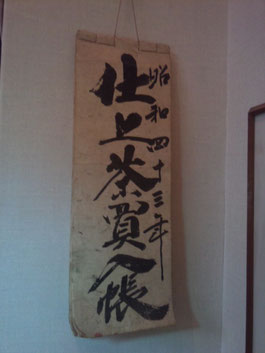 昭和四十三年
仕上茶買入帳